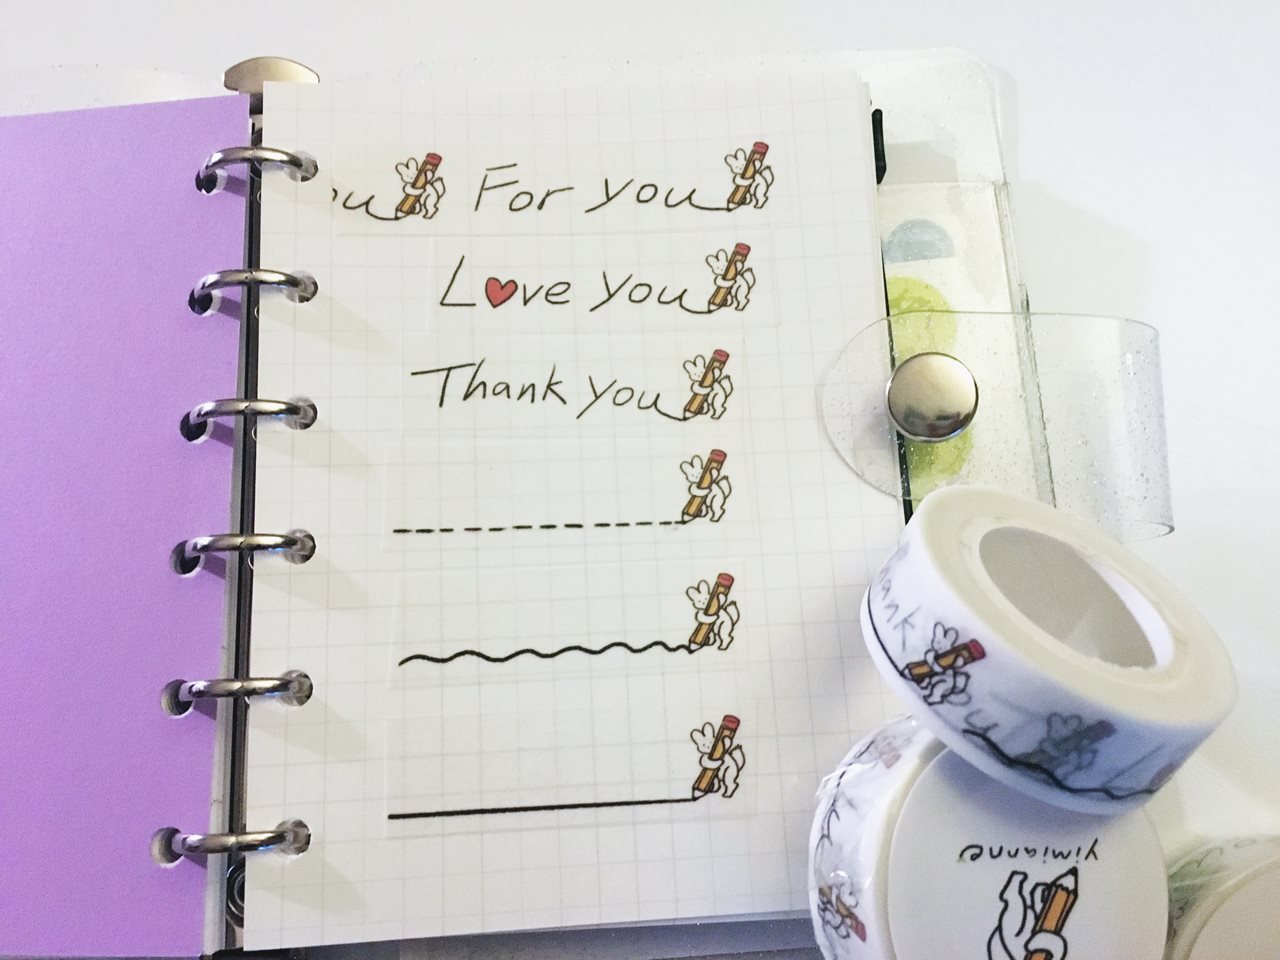 ou For you
Love you
Thank you
Thank
you
yimianne